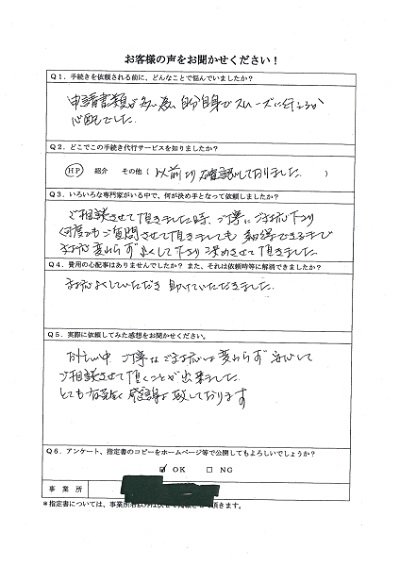 お客様の声をお聞かせください！
Q1．手続きを依頼される前に、どんなことで悩んでいましたか？
申請書類が多い為、自分自身でスムーズに行えるか
心配でした。
Q2．どこでこの手続き代行サービスを知りましたか？
HP 紹介 その他（以前より確認しておりました。）
Q3．いろいろな専門家がいる中で、何が決め手となって依頼しましたか？
ご相談させて頂きました時、ご丁寧に対応下さり
何度もご質問させて頂きましても 納得できるまで
対応変わらずよくして下さり 決めさせて頂きました。
Q4．費用の心配事はありませんでしたか？ また、それは依頼時等に解消できましたか？
対応よくしていただき 助けていただきました。
Q5．実際に依頼してみた感想をお聞かせください。
お忙しい中 ご丁寧なご対応は変わらず 安心して
ご相談させて頂くことが出来ました。
とても 感謝 致しております
Q6．アンケート、指定書のコピーをホームページ等で公開してもよろしいでしょうか？
☑ OK □ NG
事業所
＊指定書については、事業所名以外は伏せて 頂きます。